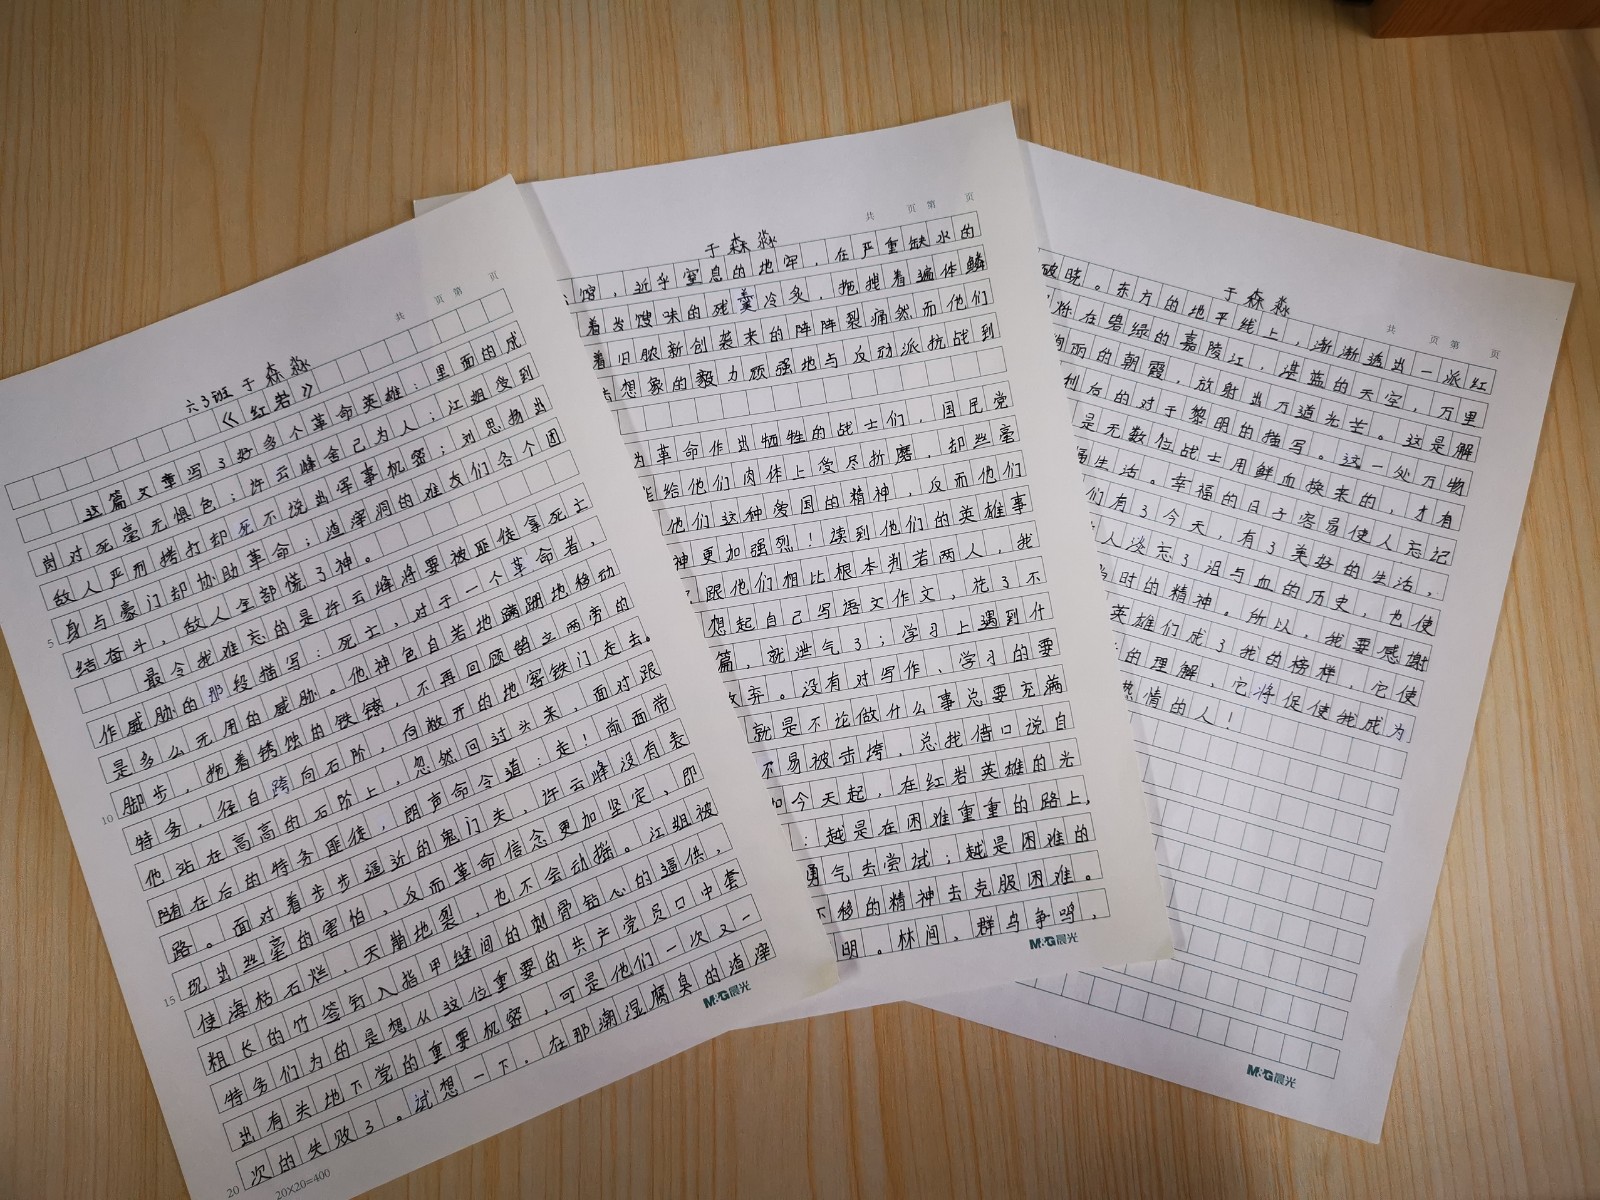 共 页 第 页
六3班 于森淼
《红岩》
这篇文章写了好多个革命英雄：里面的成
岗对死毫无惧色；许云峰舍己为人；江姐受到
敌人严刑拷打却死不说出军事机密；刘思扬出
身与豪门却协助革命；渣滓洞的难友们各个团
结奋斗，敌人全部慌了神。
最令我难忘的是许云峰将要被匪徒拿死亡
作威胁的那段描写：死亡，对于一个革命者，
是多么无用的威胁。他神色自若地蹒跚地移动
脚步，拖着锈蚀的铁镣，不再回顾鹄立两旁的
特务，径自跨向石阶，向敞开的地窖铁门走去。
他站在高高的石阶上，忽然回过头来，面对跟
随在后的特务匪徒，朗声命令道：走！前面带
路。面对着步步逼近的鬼门关，许云峰没有表
现出丝毫的害怕，反而革命信念更加坚定，即
使海枯石烂，天崩地裂，也不会动摇。江姐被
粗长的竹签钉入指甲缝间的刺骨钻心的逼供，
特务们为的是想从这位重要的共产党员口中套
出有关地下党的重要机密，可是他们一次又一
次的失败了。试想一下，在那潮湿腐臭的渣滓
5
10
15
20
20X20=400
M&G晨光
共 页 第 页
于森淼
馆，近乎窒息的地牢，在严重缺水的
着发馊味的残羹冷炙，拖拽着遍体鳞
着旧脓新创袭来的阵阵裂痛然而他们
想象的毅力顽强地与反动派抗战到
为革命作出牺牲的战士们，国民党
给他们肉体上受尽折磨，却丝毫
他们这种爱国的精神，反而他们
神更加强烈！读到他们的英雄事
跟他们相比根本判若两人，我
想起自己写语文作文，花了不
篇，就泄气了；学习上遇到什
放弃。没有对写作、学习的要
就是不论做什么事总要充满
不易被击垮，总找借口说自
今天起，在红岩英雄的光
：越是在困难重重的路上，
勇气去尝试；越是困难的
不移的精神去克服困难。
明。林间，群鸟争鸣，
M&G晨光
共 页 第 页
于森淼
破晓。东方的地平线上，渐渐透出一派红
将在碧绿的嘉陵江，湛蓝的天空，万里
绚丽的朝霞，放射出万道光芒。这是解
利后的对于黎明的描写。这一处万物
是无数位战士用鲜血换来的，才有
福生活。幸福的日子容易使人忘记
们有了今天，有了美好的生活，
人淡忘了泪与血的历史，也使
当时的精神。所以，我要感谢
英雄们成了我的榜样，它使
的理解，它将促使我成为
热情的人！
M&G晨光